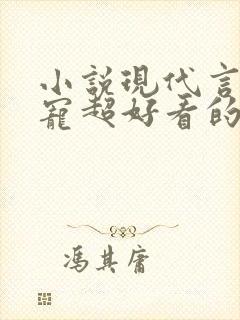 小説現代言
寵超好看的
馮其庸